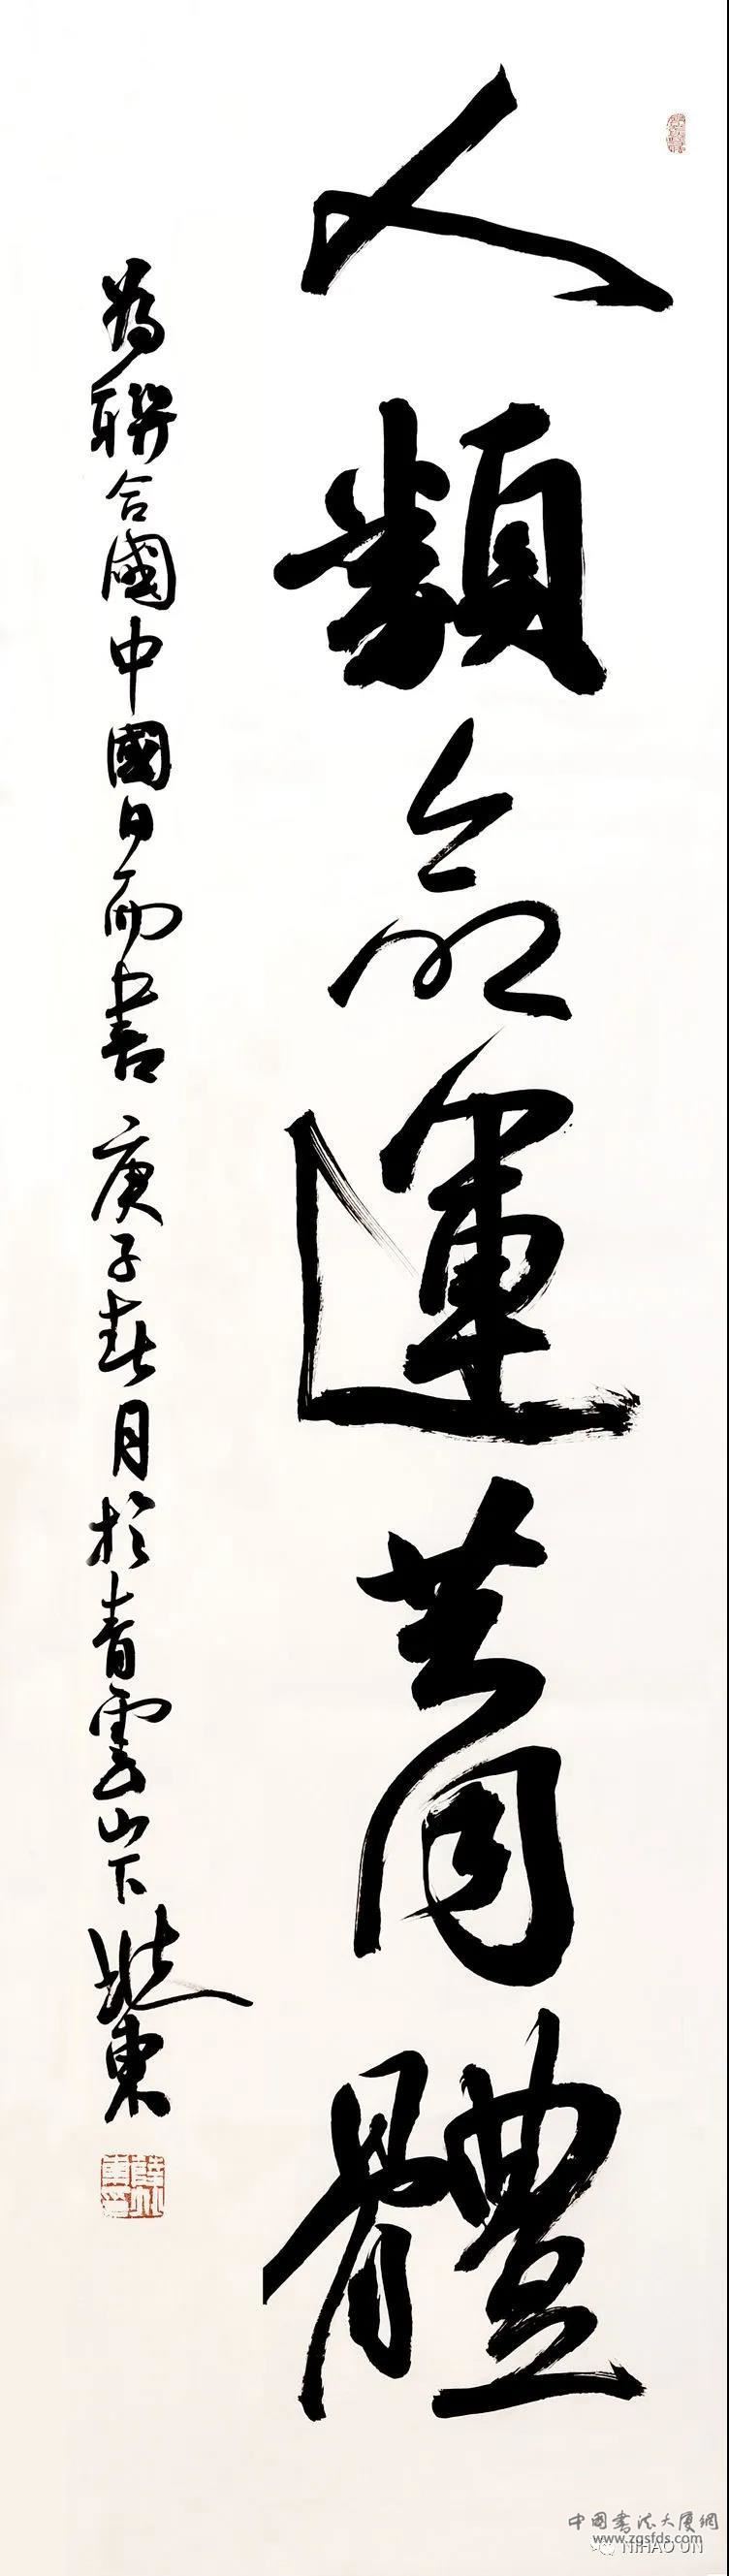 人類命運共同體
為聯合國中國日而書 庚子春月於青雲山下 東
中國書法大廈網
www.zgsfds.com
NIHAO UN